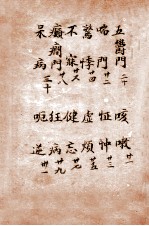 五鬱門二十 咳嗽廿一
喘門廿二 怔忡廿三
驚悸廿四 虛煩廿五
不寐廿六 健忘廿七
癲癇門廿八 狂病廿九
呆病三十 呃逆卅一